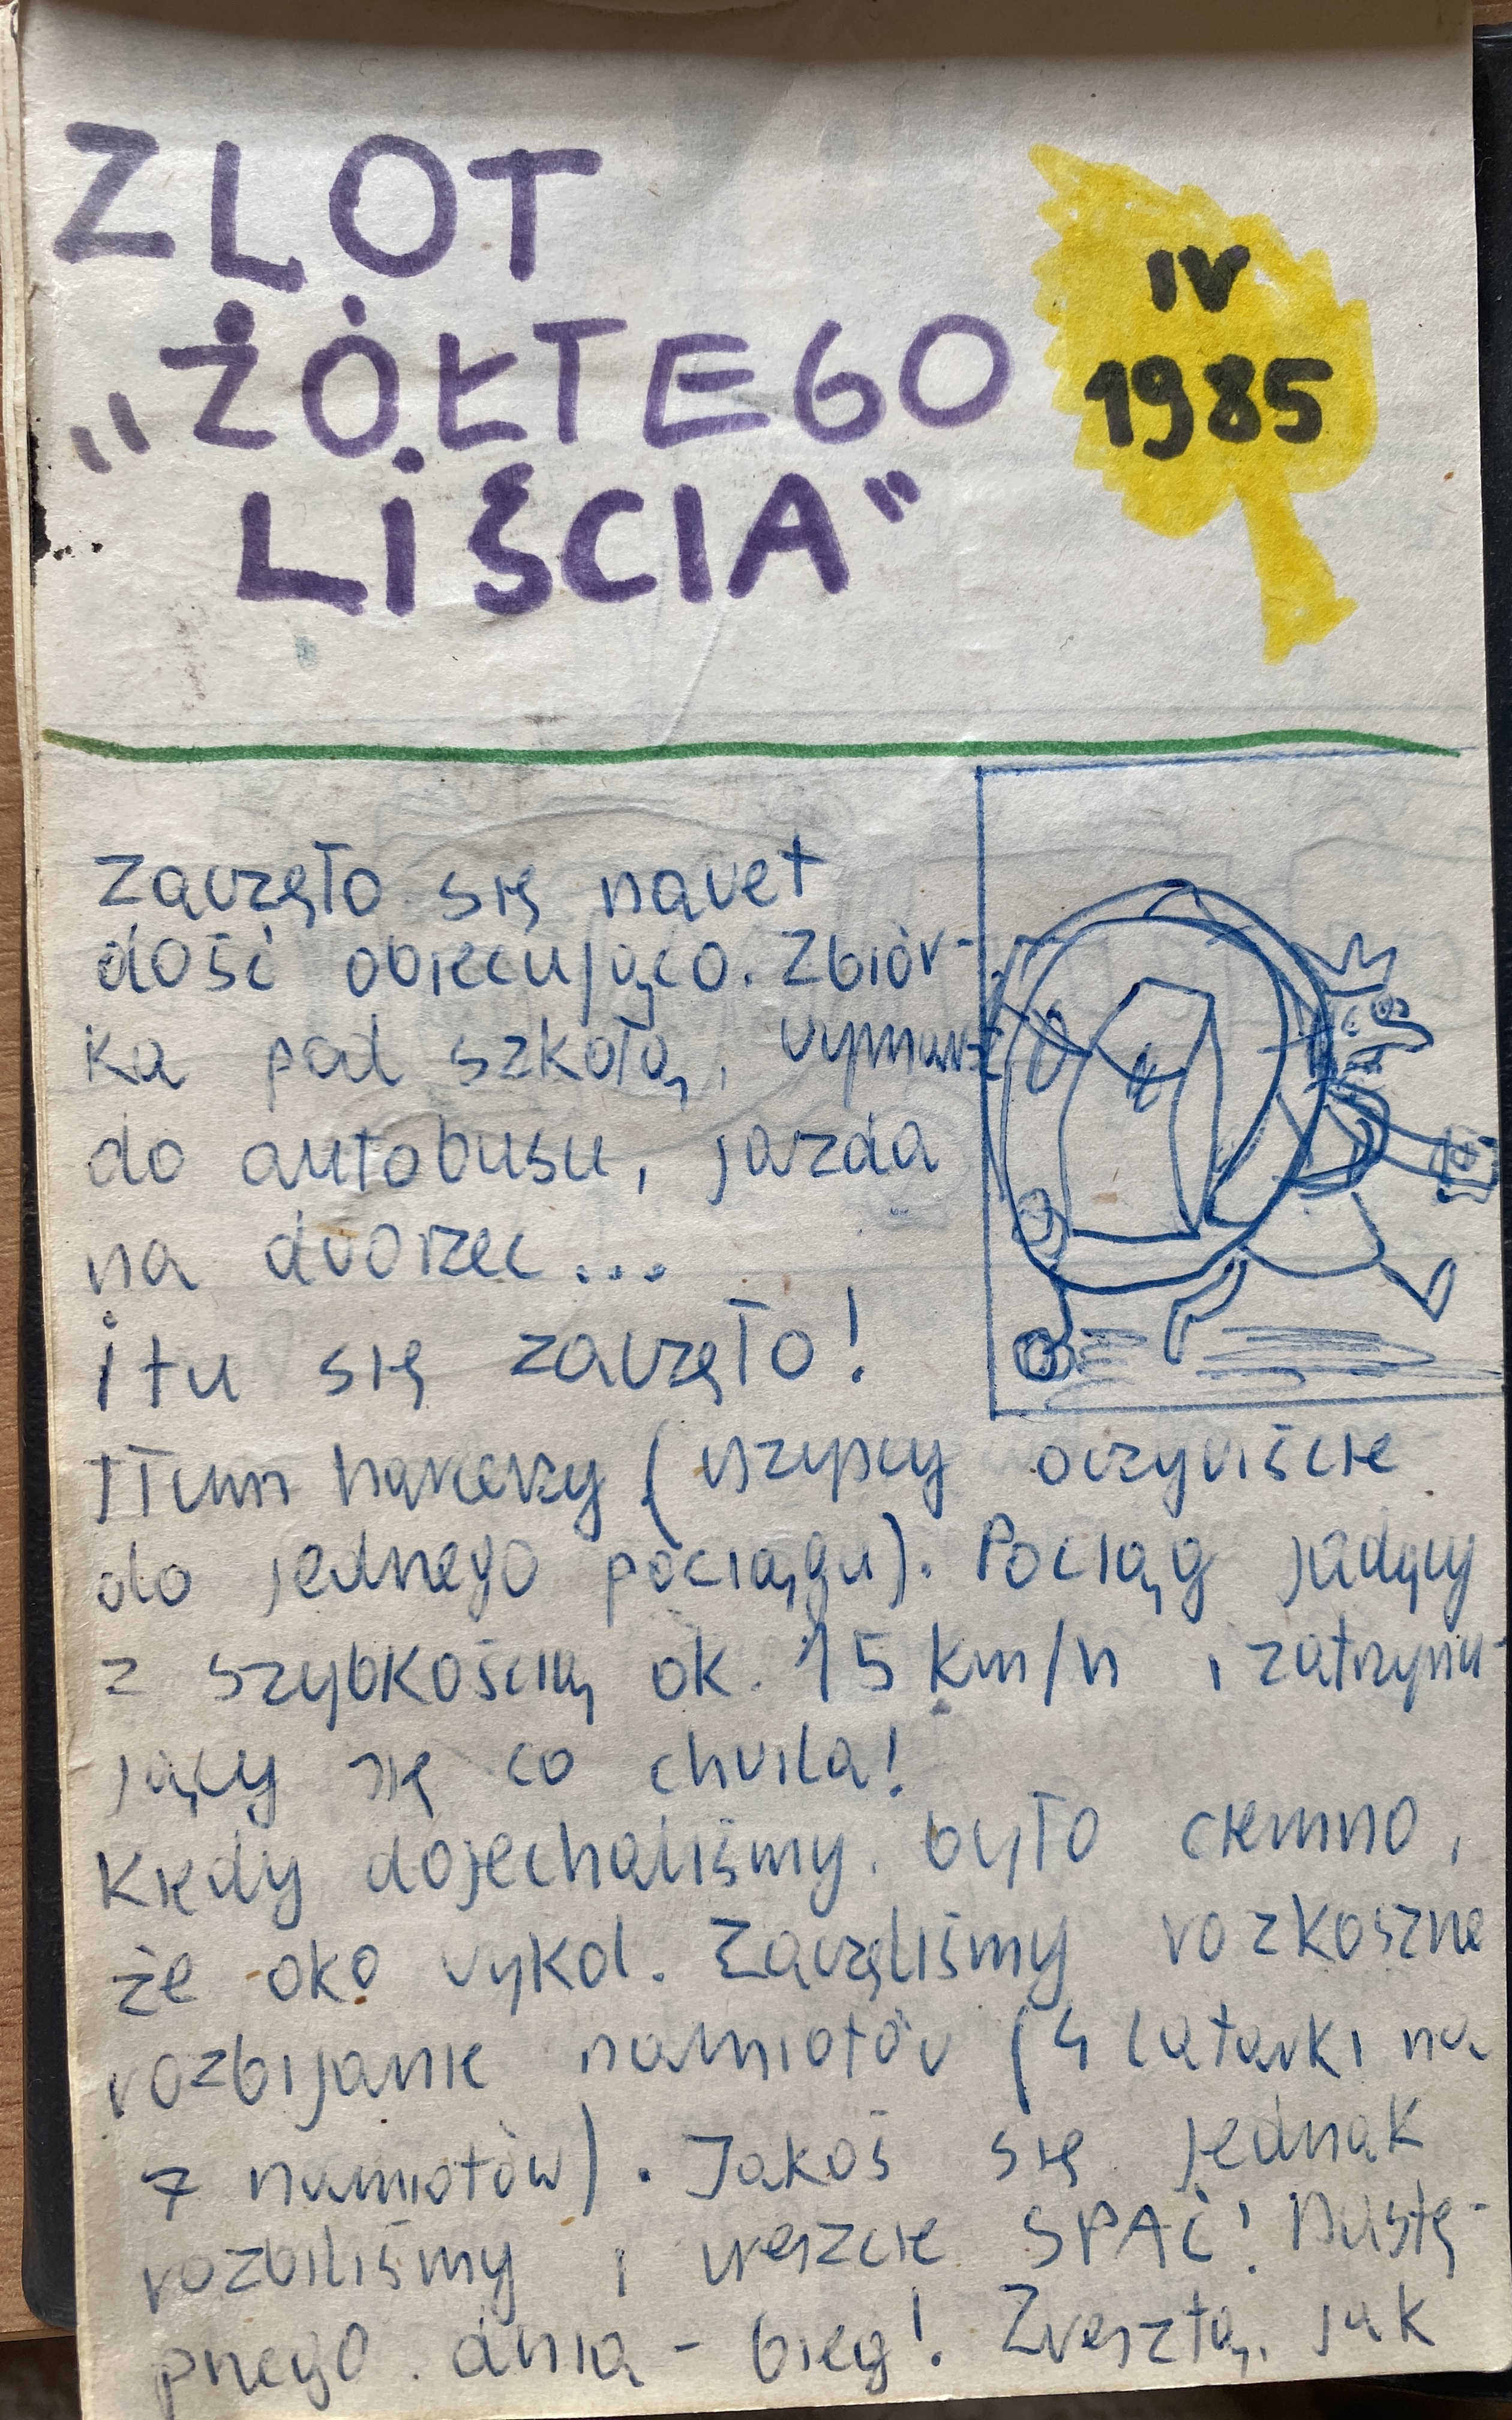 ZLOT
„ŻÓŁTEGO
LIŚCIA”
IV
1985
Zaczęło się nawet
dość obiecująco. Zbiór-
ka pod szkołą, wymarsz
do autobusu, jazda
na dworzec...
i tu się zaczęło!
Tłum harcerzy (wszyscy oczywiście
do jednego pociągu). Pociąg jadący
z szybkością ok. 15 km/h i zatrzymu-
jący się co chwila!
Kiedy dojechaliśmy, było ciemno,
że oko wykol. Zaczęliśmy rozkoszne
rozbijanie namiotów (4 latarki na
7 namiotów). Jakoś się jednak
rozbiliśmy i wreszcie SPAĆ! Nastę-
pnego dnia - bieg! Zresztą, jak